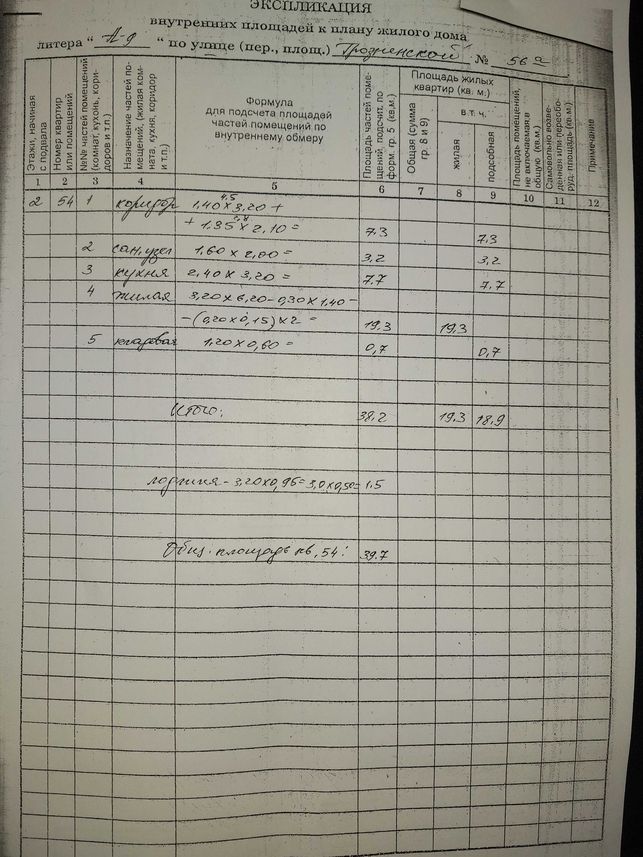 ЭКСПЛИКАЦИЯ
внутренних площадей к плану жилого дома
литера “ А-9 “ по улице (пер., площ.) Гродненской № 56 а
Этажи, начиная с подвала
Номер квартир или помещений
№№ частей помещений (комнат, кухонь, коридоров и т.п.)
Назначение частей помещений, (жилая комната, кухня, коридор и т.п.)
Формула для подсчета площадей частей помещений по внутреннему обмеру
Площадь частей помещений, подсчит. по форм. гр. 5 (кв.м.)
Площадь жилых квартир (кв. м.)
Общая (сумма гр. 8 и 9)
в т. ч.
жилая
подсобная
Площадь помещений, не включаемая в общую (кв.м.)
Самовольно возведенная или переоборуд. площадь (кв. м)
Примечание
1 2 3 4 5 6 7 8 9 10 11 12
4,5
2 54 1 коридор 1,40 х 3,20 +
2,8
+ 1,35 х 2,10 = 7.3 7.3
2 сан.узел 1,60 х 2,00 = 3,2 3,2
3 кухня 2,40 х 3,20 = 7.7 7,7
4 жилая 3,20 х 6,20 - 0,30 х 1,40 -
- (0,20 х 0,15) х 2 = 19,3 19,3
5 кладовая 1,20 х 0,60 = 0,7 0,7
Итого: 38,2 19,3 18,9
лоджия - 3,20 х 0,95 = 3,0 х 0,50 = 1.5
Общ. площадь кв. 54: 39.7